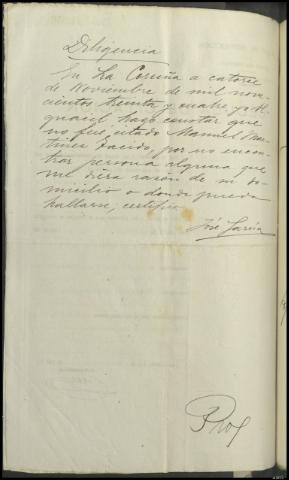 Diligencia
En La Coruña a catorce
de Noviembre de mil nove-
cientos treinta y cuatro, yo Al-
guacil hago constar que
no fue citado Manuel Mar-
tinez por no encon-
trar persona alguna que
me diera razón de su do-
micilio o donde pueda
hallarse, certifico
José García